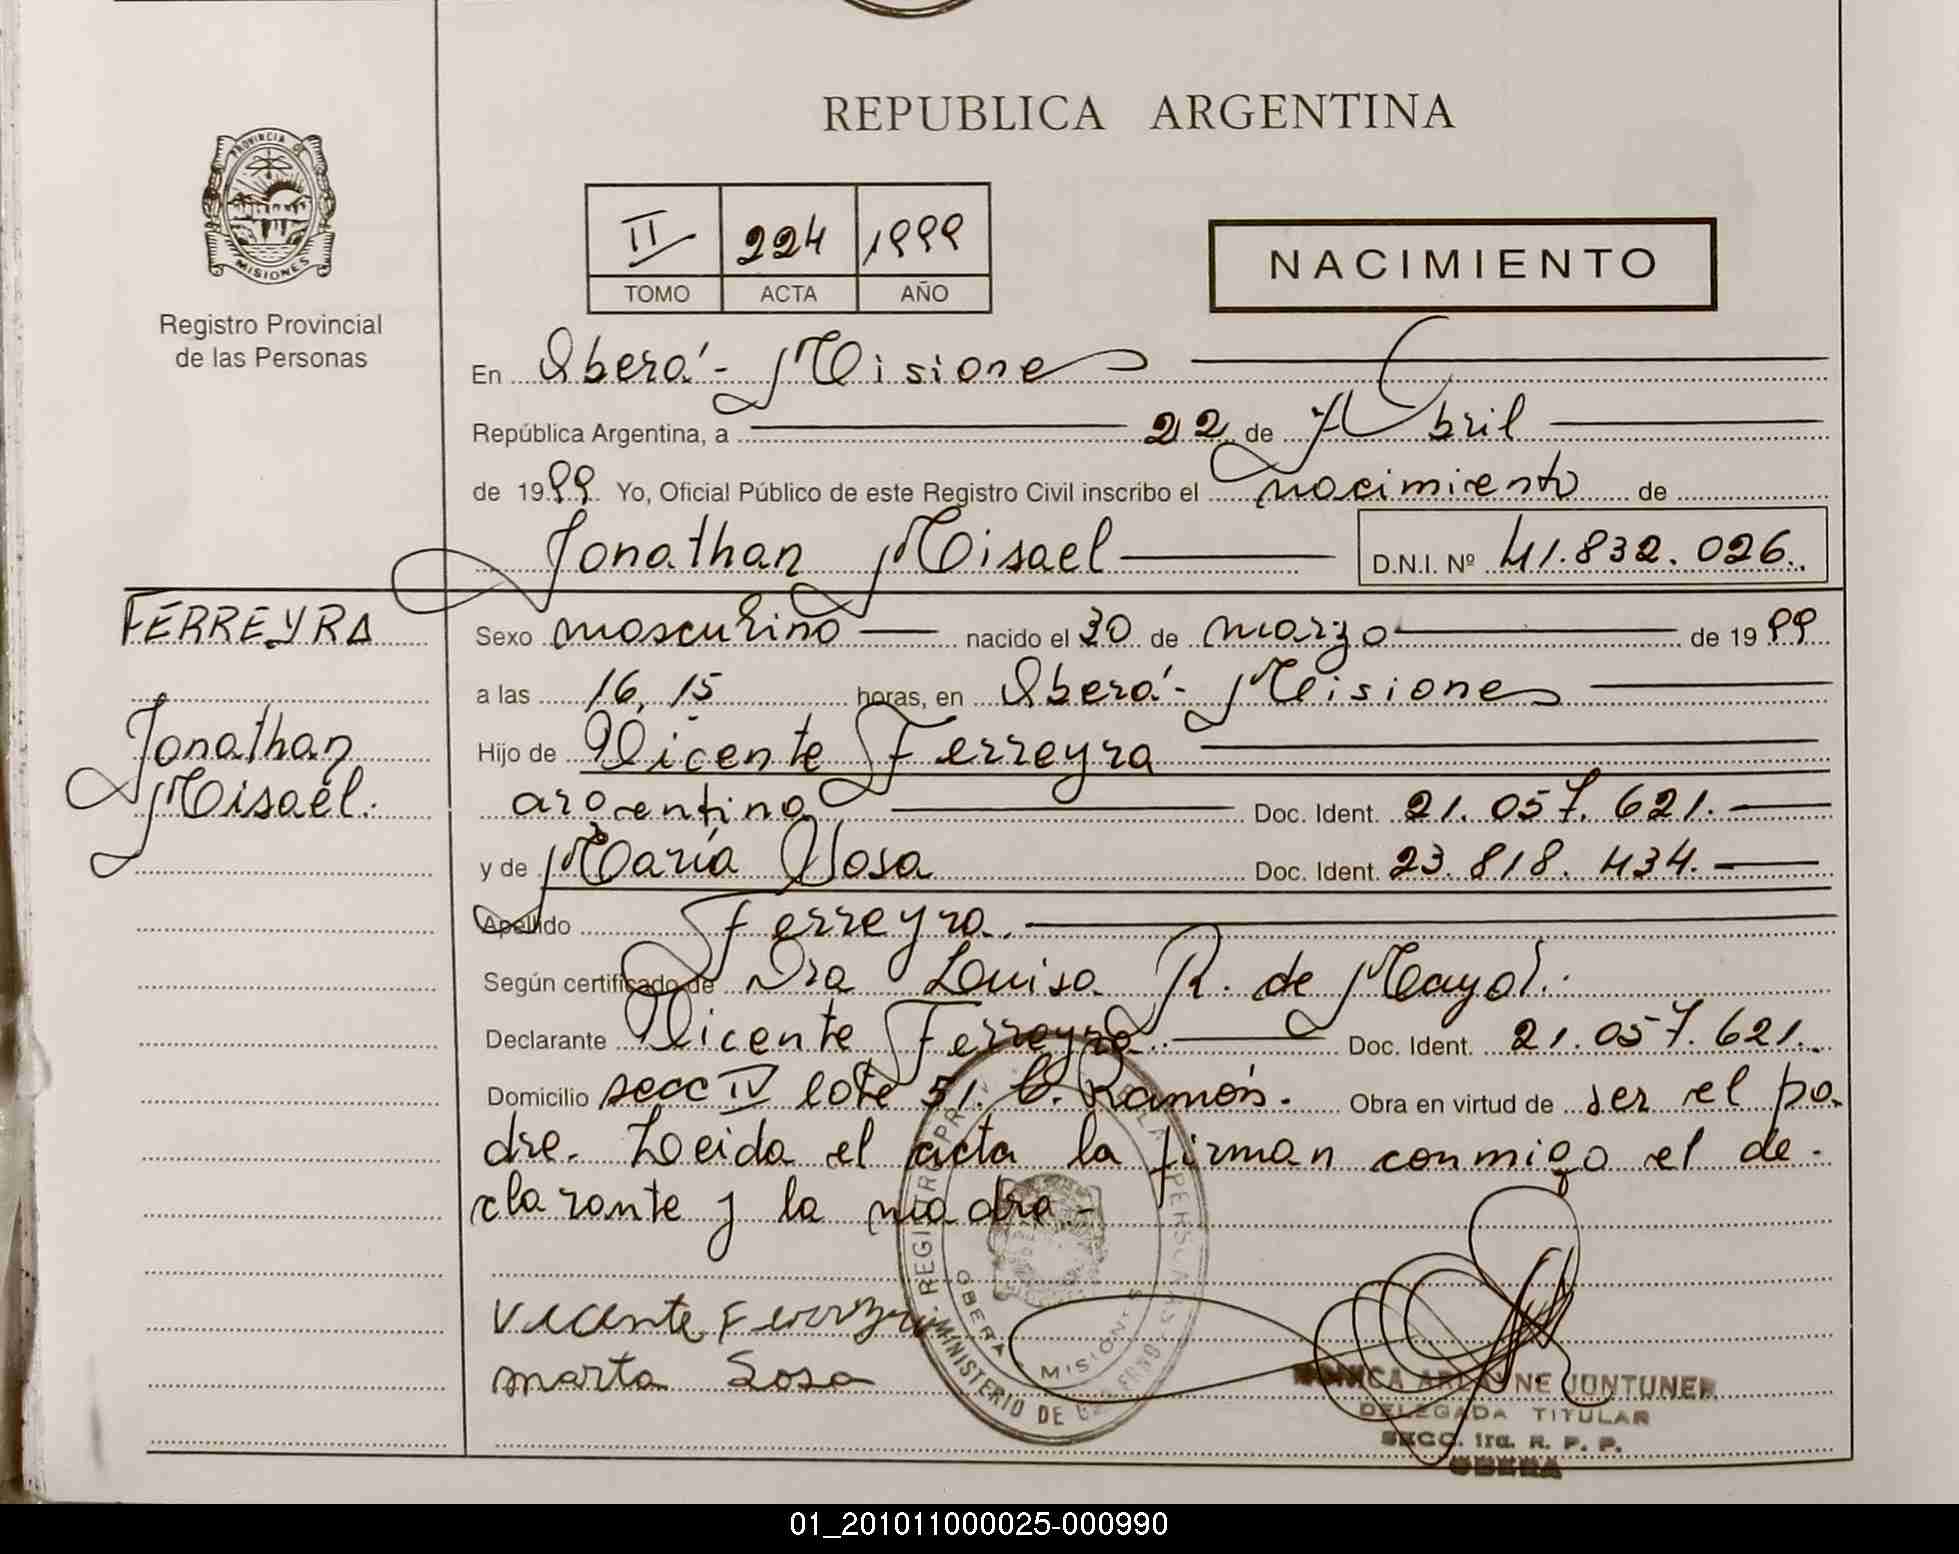 REPUBLICA ARGENTINA
PROVINCIA DE
MISIONES
Registro Provincial
de las Personas
II 224 1999
TOMO ACTA AÑO
NACIMIENTO
En Oberá - Misiones
República Argentina, a 22 de Abril
de 1999 Yo, Oficial Público de este Registro Civil inscribo el nacimiento de
Jonathan Misael D.N.I. Nº 41.832.026.
FERREYRA
Jonathan
Misael.
Sexo masculino nacido el 30 de marzo de 1999
a las 16,15 horas, en Oberá - Misiones
Hijo de Vicente Ferreyra
argentino Doc. Ident. 21.057.621.
y de María Sosa Doc. Ident. 23.818.434.
Apellido Ferreyra.
Según certificado de Dra Louisa R. de Mayol.
Declarante Vicente Ferreyra. Doc. Ident. 21.057.621.
Domicilio secc IV lote 51. C. Ramón. Obra en virtud de ser el pa-
dre. Leida el acta la firman conmigo el de-
clarante y la madre.-
Vicente Ferreyra
marta Sosa
MINISTERIO DE GOBIERNO
OBERA MISIONES
ARLAYNE JUNTUNEN
DELEGADA TITULAR
SECC. 1ra. R. P. P.
OBERA
01_201011000025-000990